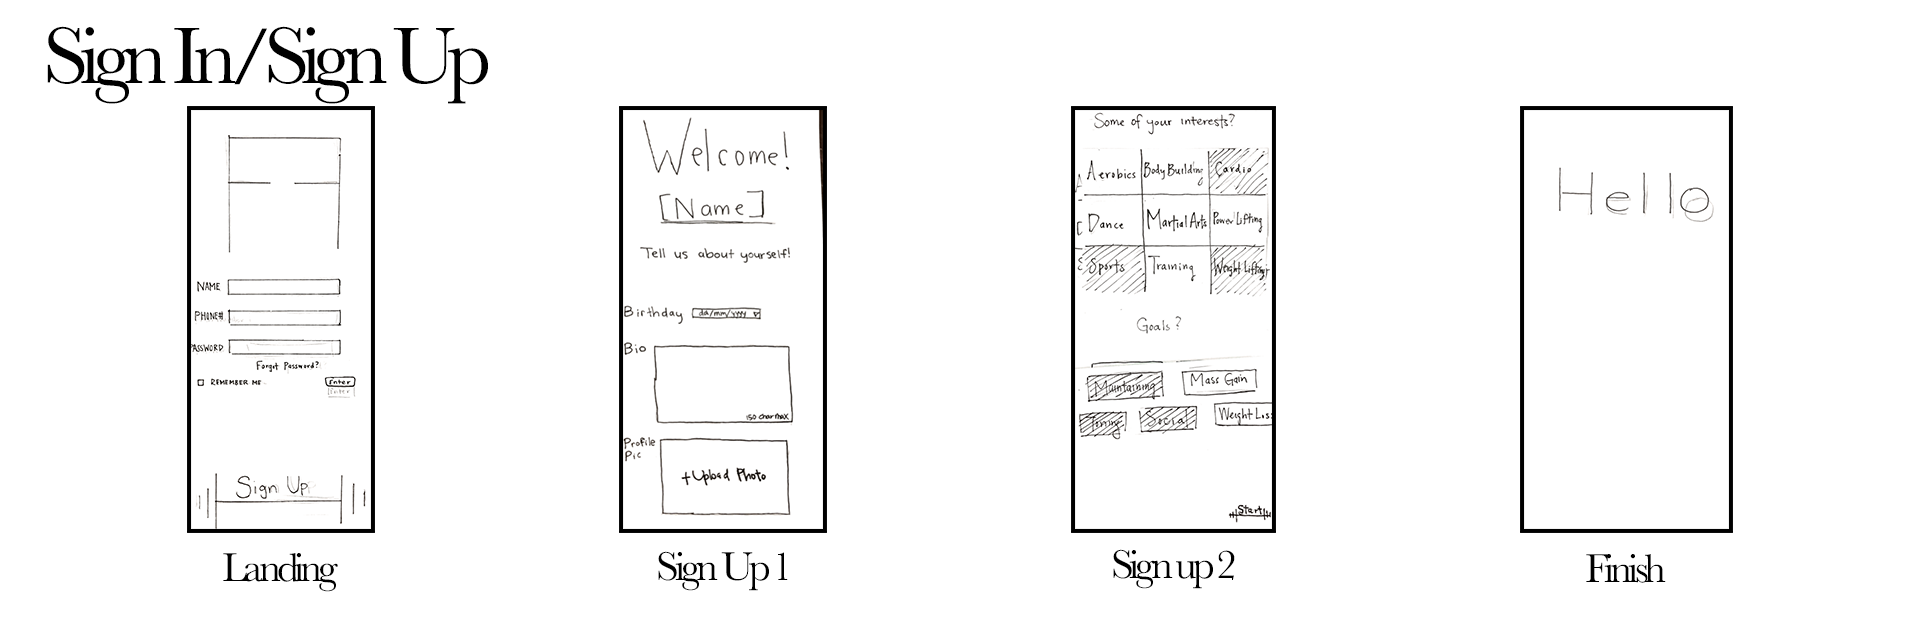 Sign In/Sign Up
NAME
PHONE#
PASSWORD
Forgot Password?
REMEMBER ME
Enter
Enter
Sign Up
Landing
Welcome!
[Name]
Tell us about yourself!
Birthday dd/mm/yyyy
Bio
150 char max
Profile
Pic
+Upload Photo
Sign Up 1
Some of your interests?
Aerobics Body Building Cardio
Dance Martial Arts Power Lifting
Sports Training Weight Lifting
Goals?
Maintaining Mass Gain
Toning Social Weight Loss
Start
Sign up 2
Hello
Finish